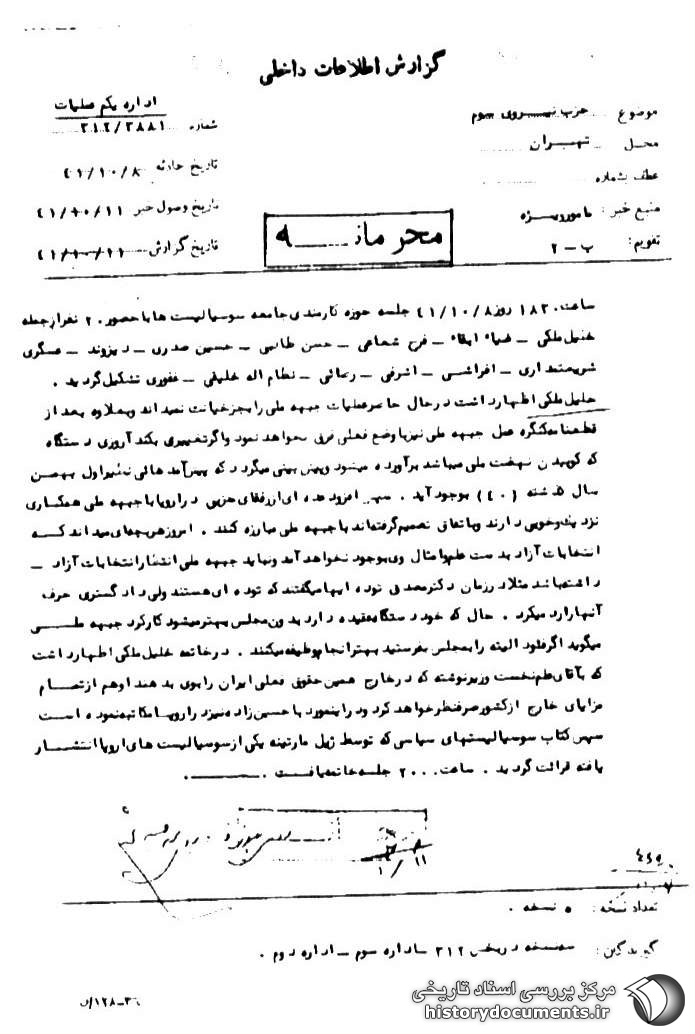 گزارش اطلاعات داخلی
اداره یکم عملیات
موضوع حزب نیروی سوم
شماره ۳۱۲/۳۸۸۱
محل تهران
تاریخ حادثه ۴۱/۱۰/۸
عطف بشماره
تاریخ وصول خبر ۴۱/۱۰/۱۱
منبع خبر: مامور ویژه
تاریخ گزارش ۴۱/۱۰/۱۱
تقویم: ب-۲
محرمانه
ساعت ۱۸۳۰ روز ۴۱/۱۰/۸ جلسه حوزه کارمندی جامعه سوسیالیست ها با حضور ۲۰ نفر از جمله
خلیل ملکی - ضیاء - فرج شعاعی - حسن طالبی - حسین صدری - دیزوند - عسگری
شریعتمداری - افراشی - اشرفی - رضائی - نظام اله خلیقی - غفوری تشکیل گردید .
خلیل ملکی اظهار داشت در حال حاضر عملیات جبهه ملی را بجز خیانت نمیداند و بعلاوه بعد از
قطعنامه کنگره عمل جبهه ملی نیز با وضع فعلی فرق نخواهد نمود و اگر تغییری بکند آرزوی دستگاه
که کوبیدن نهضت ملی میباشد برآورده میشود و پیش بینی میگردد که پیش آمدهائی نظیر اول بهمن
سال گذشته (۴۰) بوجود آید . سپس افزود عده ای از رفقای حزبی در اروپا با جبهه ملی همکاری
نزدیک و خوبی دارند و باتفاق تصمیم گرفته اند با جبهه ملی مبارزه کنند . امروز هر بچه ای میداند که
انتخابات آزاد بدست علم و امثال وی بوجود نخواهد آمد و نباید جبهه ملی انتظار انتخابات آزاد -
داشته باشد مثلا در زمان دکتر مصدق توده ایها میگفتند که توده ای هستند ولی دادگستری حرف
آنها را رد میکرد . حال که خود دستگاه عقیده دارد بدون مجلس بهتر میشود کار کرد جبهه ملی
میگوید اگر فلود الیته را بمجلس بفرستید بهتر انجام وظیفه میکنند . در خاتمه خلیل ملکی اظهار داشت
که بآقای علم نخست وزیر نوشته که در خارج همین حقوق فعلی ایران را بوی بدهند او هم از تمام
مزایای خارج از کشور صرفنظر خواهد کرد و در اینمورد با حسین زاده نیز در اروپا مکاتبه نموده است
سپس کتاب سوسیالیستهای سیاسی که توسط ژیل مارتینه یکی از سوسیالیست های اروپا انتشار
یافته قرائت گردید . ساعت ۲۰۰۰ جلسه خاتمه یافت .
۱۱/۱۰
تعداد نسخه: ۵ نسخه .
گیرندگان: سه نسخه در بخش ۳۱۲ - اداره سوم - اداره دوم .
مرکز بررسی اسناد تاریخی
historydocuments.ir